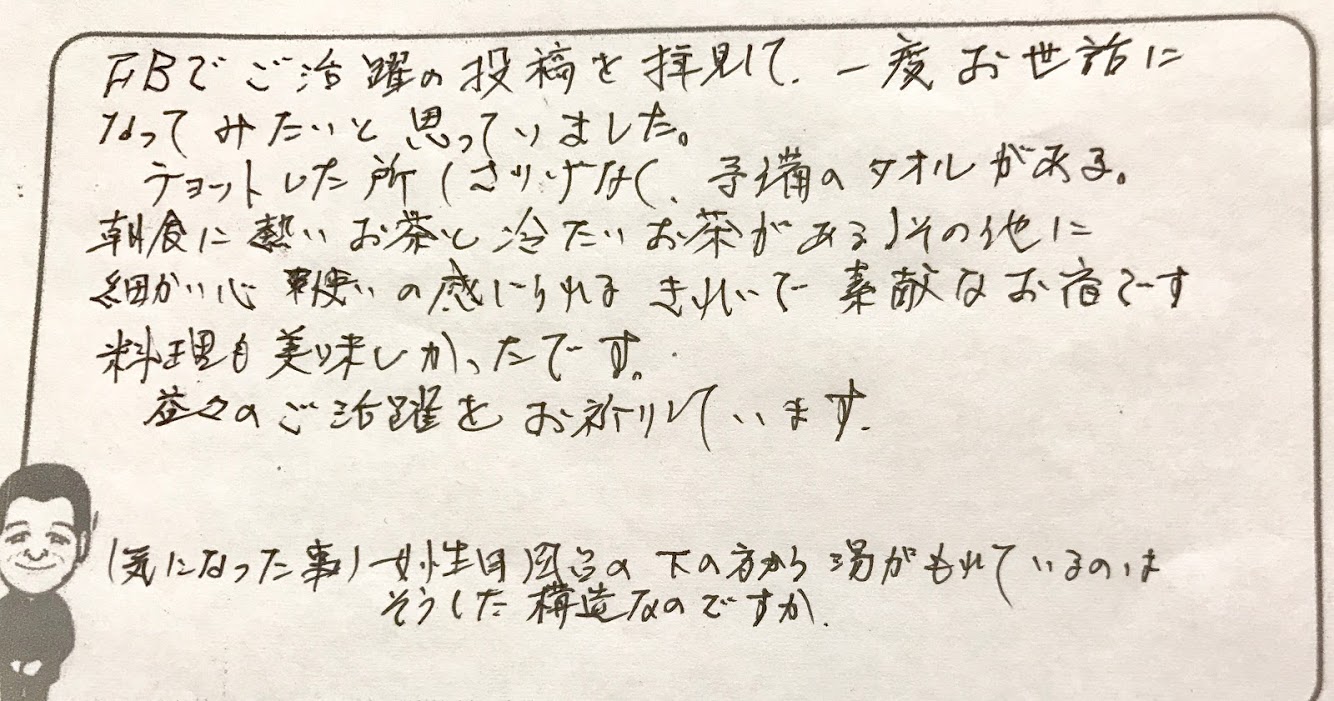 FBでご活躍の投稿を拝見して、一度お世話に
なってみたいと思っていました。
チョットした所(さりげなく、予備のタオルがある。
朝食に熱いお茶と冷たいお茶がある)その他に
細かい心使いの感じられるきれいで素敵なお宿です
料理も美味しかったです。
益々のご活躍をお祈りしています。
(気になった事)女性用風呂の下の方から湯がもれているのは
そうした構造なのですか。